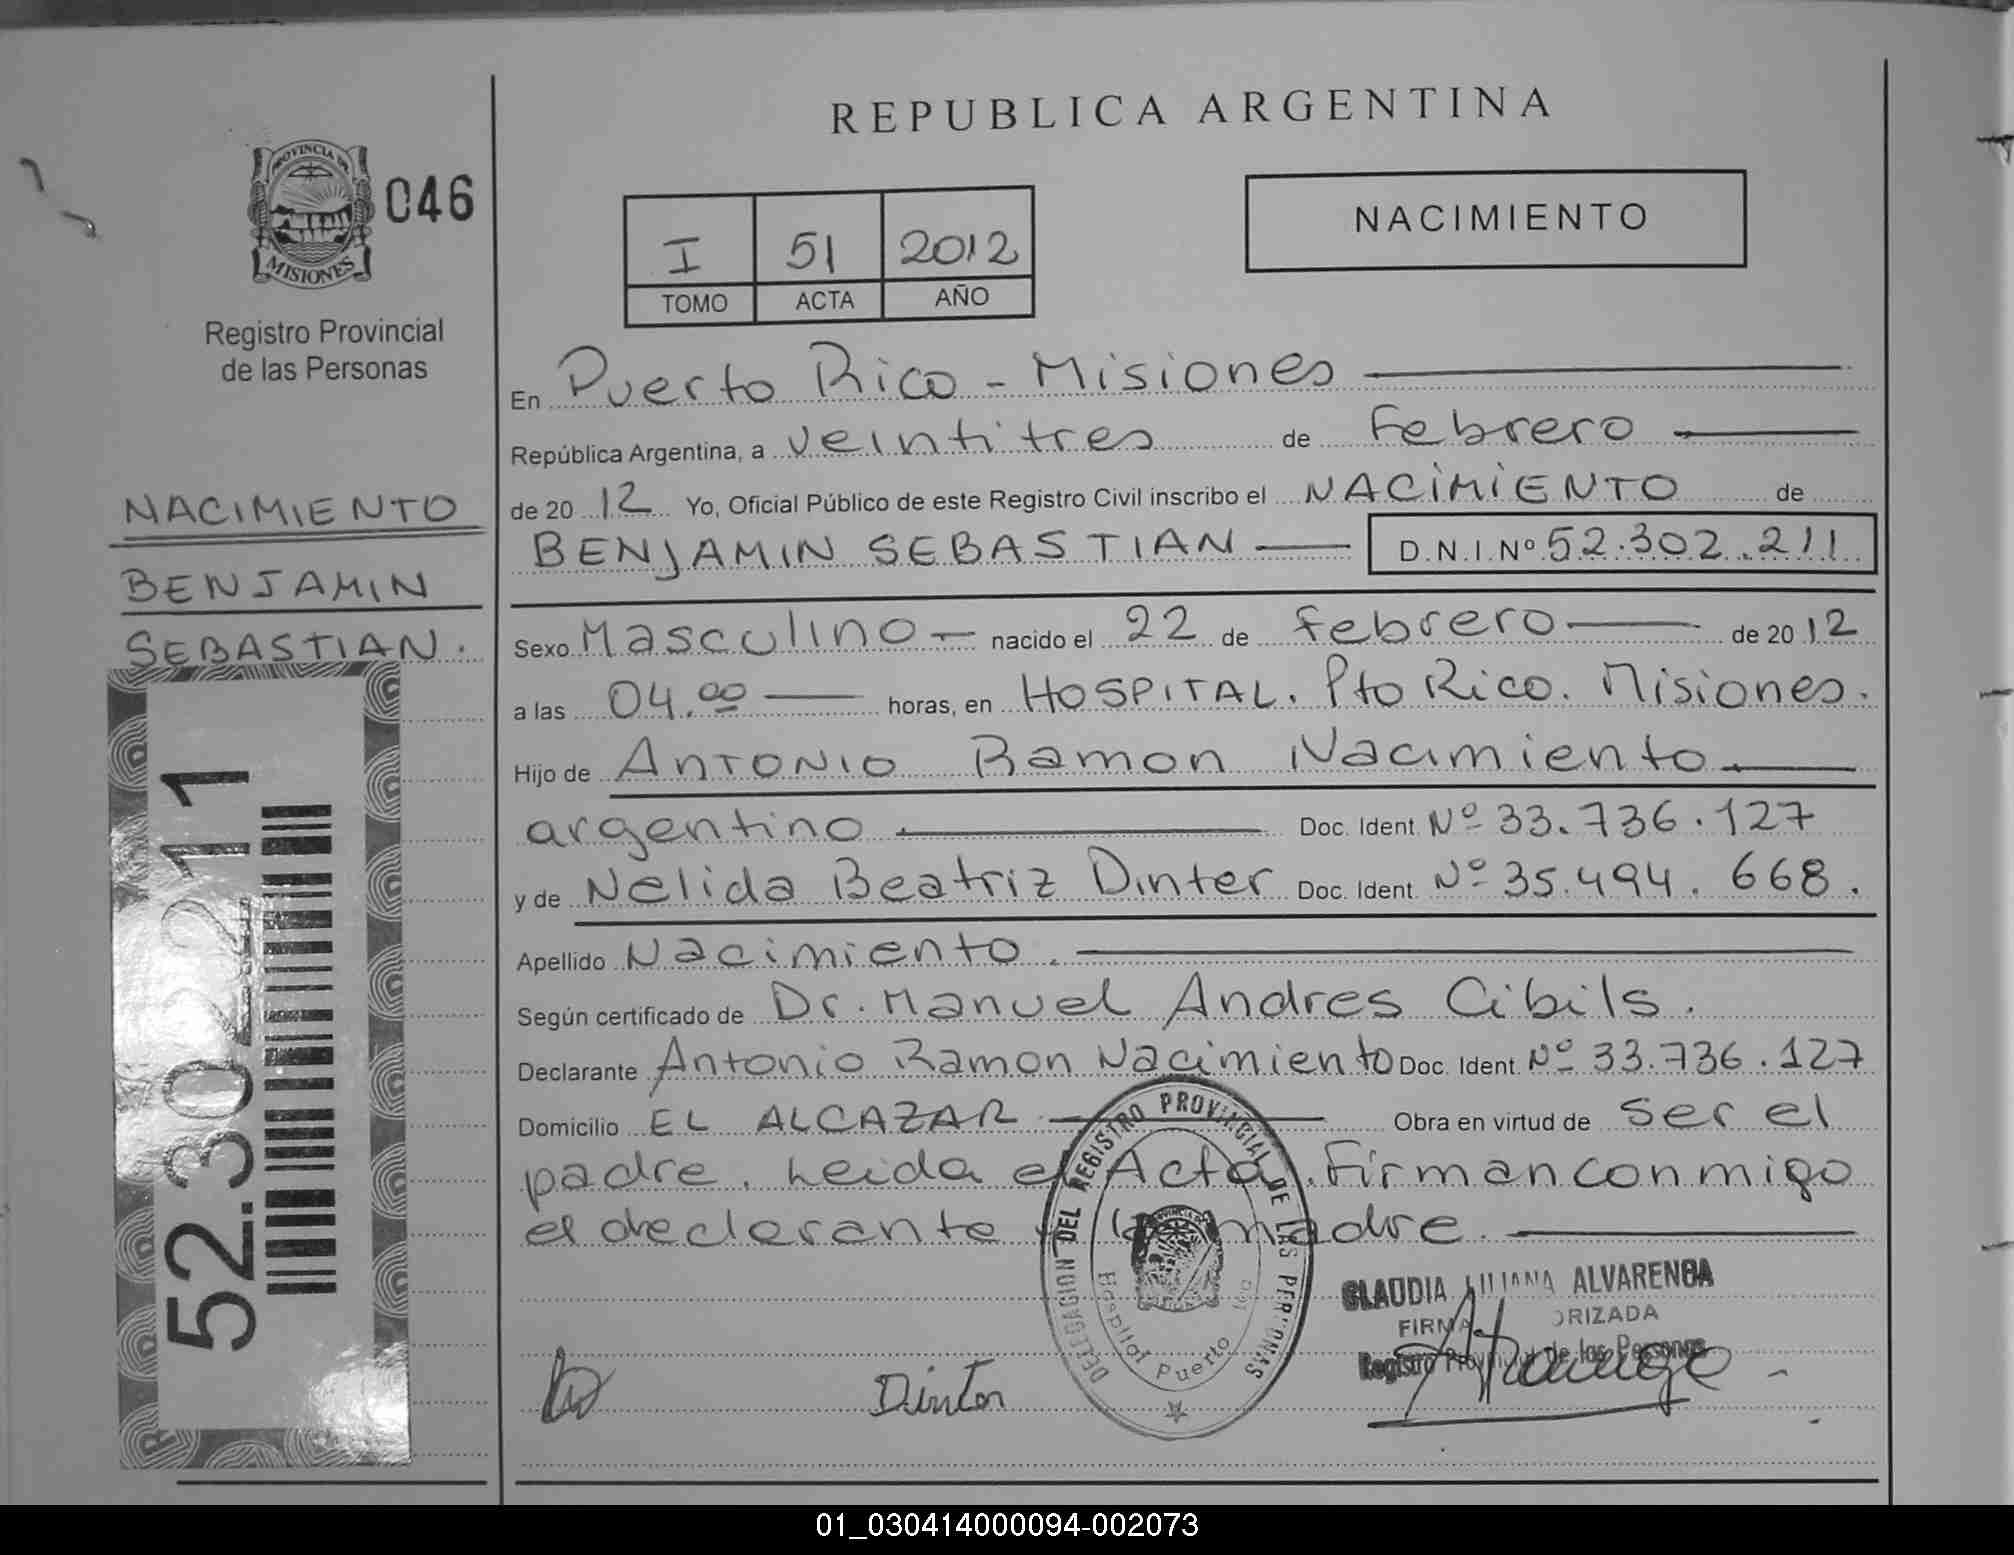 REPUBLICA ARGENTINA
PROVINCIA DE
MISIONES
046
Registro Provincial
de las Personas
I 51 2012
TOMO ACTA AÑO
NACIMIENTO
En Puerto Rico - Misiones
República Argentina, a veintitres de Febrero
de 2012 Yo, Oficial Público de este Registro Civil inscribo el NACIMIENTO de
BENJAMIN SEBASTIAN D.N.I. Nº 52.302.211
Sexo Masculino nacido el 22 de Febrero de 2012
a las 04.00 horas, en HOSPITAL. Pto Rico. Misiones.
Hijo de ANTONIO Ramon Nacimiento
argentino Doc. Ident. Nº 33.736.127
y de Nelida Beatriz Dinter Doc. Ident. Nº 35.494.668.
Apellido Nacimiento.
Según certificado de Dr. Manuel Andres Cibils.
Declarante Antonio Ramon Nacimiento Doc. Ident. Nº 33.736.127
Domicilio EL ALCAZAR Obra en virtud de ser el
padre. Leida el Acta. Firman conmigo
el declarante y la madre.
NACIMIENTO
BENJAMIN
SEBASTIAN.
52.302.211
DELEGACION DEL REGISTRO PROVINCIAL DE LAS PERSONAS
Hospital Puerto Rico
CLAUDIA LILIANA ALVARENGA
FIRMA ORIZADA
Registro Provincial de las Personas
Dinter
01_030414000094-002073